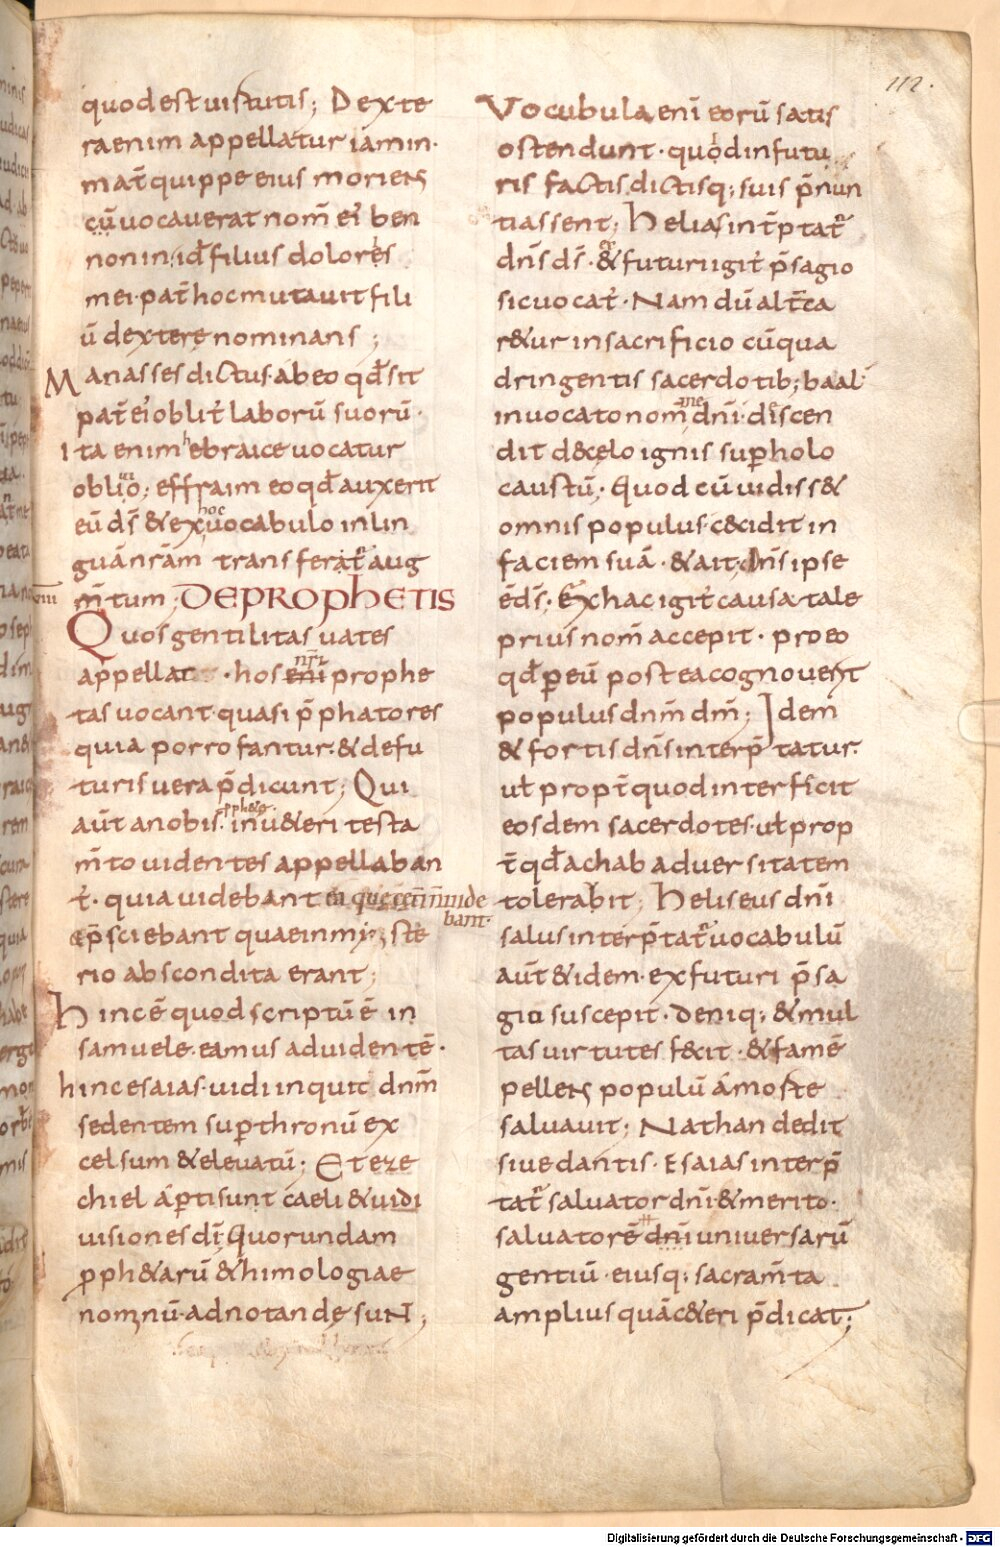 112.
quod est uirtutis; Dexte
ra enim appellatur iamin·
mat̄ quippe eius moriens
cū uocauerat nom̄ ei' ben
nonin; id̄ filius dolores
mei· pat̄ hoc mutauit fili
ū dexterę nominans;
Manasses dictus ab eo qd̄ sit
pat̄ ei' oblit' laborū suorū·
Ita enim hebraice uocatur
oblio; effraim eo qd̄ auxerit
eū dī & ex hoc uocabulo in lin
guā nr̄am transferat̄ aug
m̄tum; DE PROPHETIS
Quos gentilitas uates
appellat · hos nr̄i prophe
tas uocant· quasi p̄phatores
quia porro fantur· & de fu
turis uera p̄dicunt; Qui
aūt a nobis· pphete· in ueteri testa
m̄to uidentes appellaban
t̄· quia uidebant ea que ceteri n̄ uide
bant·
& p̄sciebant quae in miste
rio abscondita erant;
Hinc ē quod scriptū ē in
samuele· eamus ad uidentē·
hinc esaias· uidi inquit dn̄m
sedentem sup thronū ex
celsum & eleuatū; Et eze
chiel apti sunt caeli & uidi
uisiones dī; Quorundam
pph&arū & himologiae
nominū· adnotandę sunt;
Vocubula eni eorū satis
ostendunt· quod in futu
ris factis dictisq; suis p̄nun
tiassent; Helias int̄ptat̄
dn̄s ds̄· & futuri igit' p̄sagio
sic uocat'· Nam dū alt̄ca
r&ur in sacrificio cū qua
dringentis sacerdotib; baal
inuocato nomine dn̄i· descen
dit de cęlo ignis sup holo
caustū· Quod cū uidiss&
omnis populus· cecidit in
faciem suā· & ait· dn̄s ipse
ē ds̄· Ex hac igit' causa tale
prius nom̄ accepit· pro eo
qd̄ p eū postea cognouerit
populus dn̄m dm̄; Idem
& fortis dn̄s interp̄tatur·
ut propt̄ quod interficit
eosdem sacerdotes· ut prop
t̄ qd̄ achab aduersitatem
tolerabit; Heliseus dn̄i
salus interp̄tat̄ uocabulū
aūt & idem· ex futuri p̄sa
gio suscepit· Deniq; & mul
tas uirtutes fecit· & famē
pellens populū a morte
saluauit; Nathan dedit
siue dantis· Esaias interp̄
tat̄ saluator dn̄i· & merito·
saluatorē dn̄i uniuersarū
gentiū· eiusq; sacram̄ta
amplius quā ceteri p̄dicat;
Digitalisierung gefördert durch die Deutsche Forschungsgemeinschaft - DFG